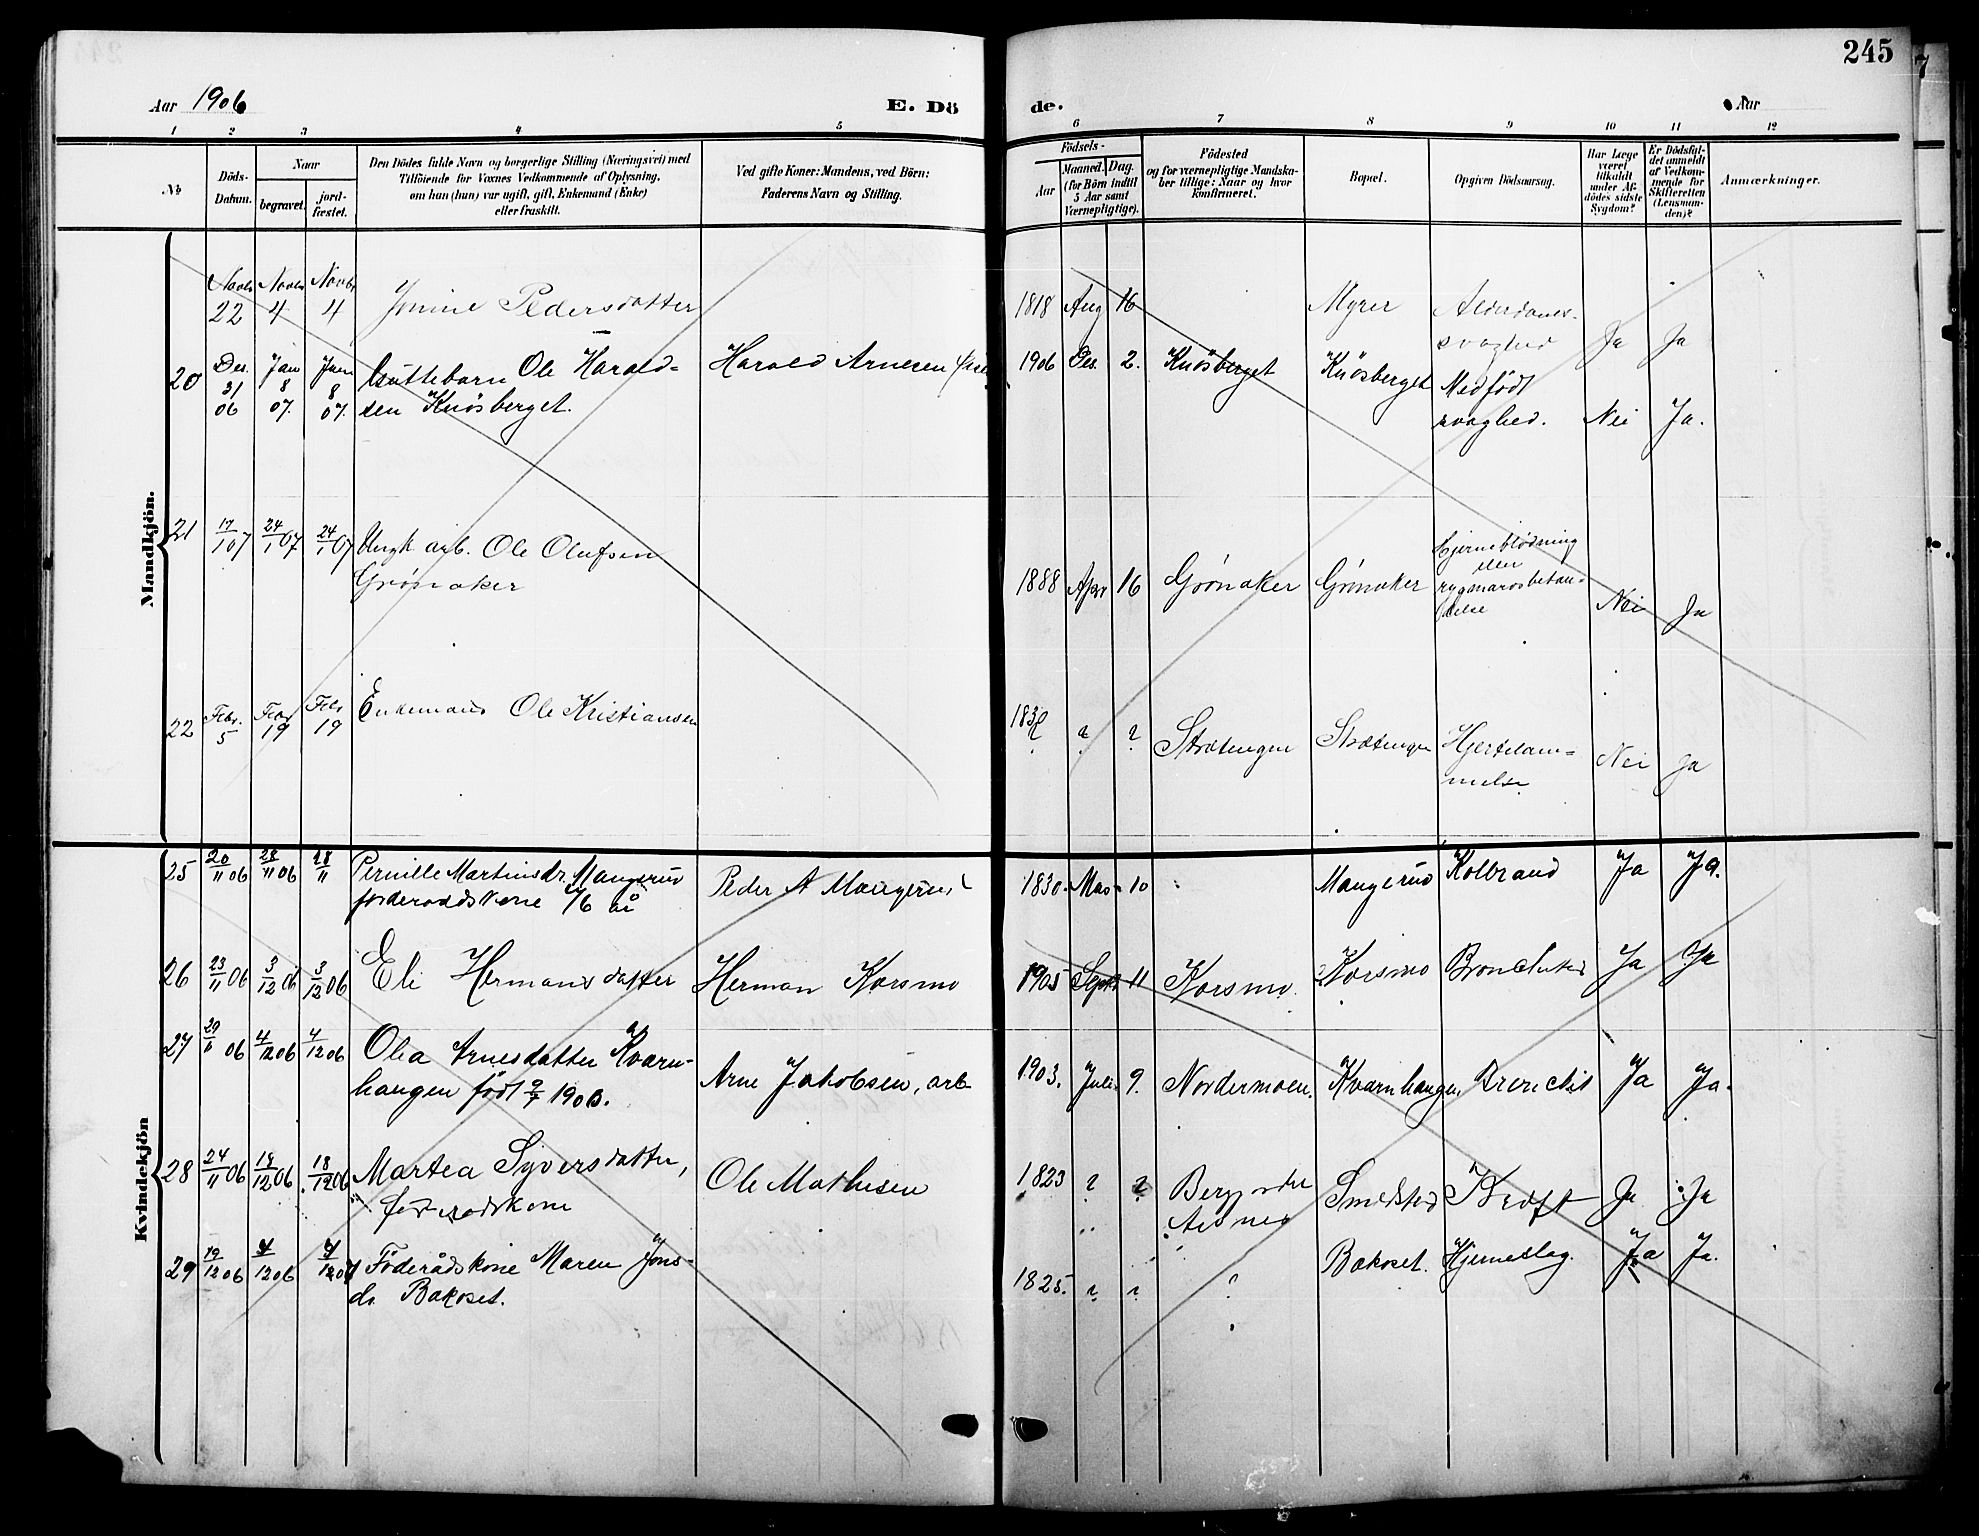 245
Aar 1906
E. Dö
de.
Aar
1 2 3 4 5 6 7 8 9 10 11 12
No
Döds-
Datum.
Naar
begravet.
jord-
fæstet.
Den Dödes fulde Navn og borgerlige Stilling (Næringsvei) med
Tilföiende for Voxnes Vedkommende af Oplysning,
om han (hun) var ugift, gift, Enkemand (Enke)
eller fraskilt.
Ved gifte Koner: Mandens, ved Börn:
Faderens Navn og Stilling.
Födsels-
Aar
Maaned. Dag.
(for Börn indtil
5 Aar samt
Værnepligtige).
Födested
og for værnepligtige Mandska-
ber tillige: Naar og hvor
konfirmeret.
Bopæl.
Opgiven Dödsaarsag.
Har Læge
været
tilkaldt
under Af-
dödes sidste
Sygdom?
Er Dödsfal-
det anmeldt
af Vedkom-
mende for
Skifteretten
(Lensman-
den)?
Anmærkninger.
Mandkjön.
22 4 4 Pedersdatter 1818 Aug 16 Myrer
svaghed Ja Ja
20 Des. 31 06 Jan 8 07. Jan 8 07. Ole Harald-
sen Knösberget. Harald Arnesen 1906 Des. 2. Knösberget Knösberget Medfödt
svaghed. Nei Ja.
21 17/1 07 24/1 07 24/1 07 Ungk arb. Ole Olufsen
Grønaker 1888 Apr 16 Grønaker Grønaker Hjerneblödning
eller
Nei Ja
22 Febr. 5 Febr 19 Febr 19 Enkemand Ole Kristiansen ? ? Strætengen Strætengen Hjertelam-
melse Nei Ja
Kvindekjön
25 20/11 06 28/11 06 28/11 Pernille Martinsdr. Mangerud
76 år Peder A Mangerud 1830 10 Mangerud Kolbrand Ja Ja.
26 23/11 06 3/12 06 3/12 06 Eli Hermansdatter Herman Korsmo 1905 Sept 11 Korsmo. Korsmo Ja Ja
27 29/11 06 4/12 06 4/12 06 Olea Arnesdatter Kværn-
haugen født 9/7 1903. Arne Jakobsen, arb 1903. Juli 9. Nordermoen. Kværnhaugen Ja Ja.
28 24/11 06 18/12 06 18/12 06 Martea Syversdatter,
Ole Mathisen 1823 ? ? Smedstad Kreft Ja Ja
Åsnes
29 19/12 06 Föderådskone Maren Jons-
dr. Bakoset. 1825. ? ? ? Bakoset. Hjerneslag. Ja Ja.